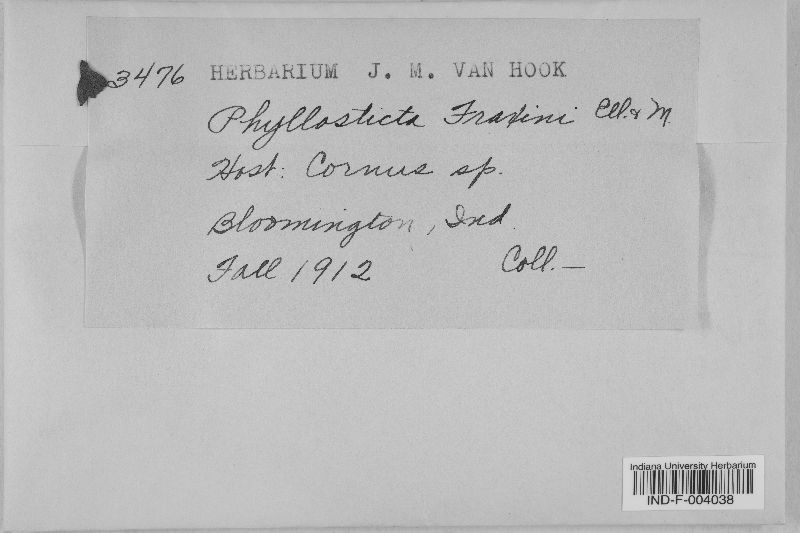 3476 HERBARIUM J. M. VAN HOOK
Phyllosticta Fraxini Ell. & M.
Host: Cornus sp.
Bloomington, Ind.
Fall 1912 Coll. —
Indiana University Herbarium
IND-F-004038